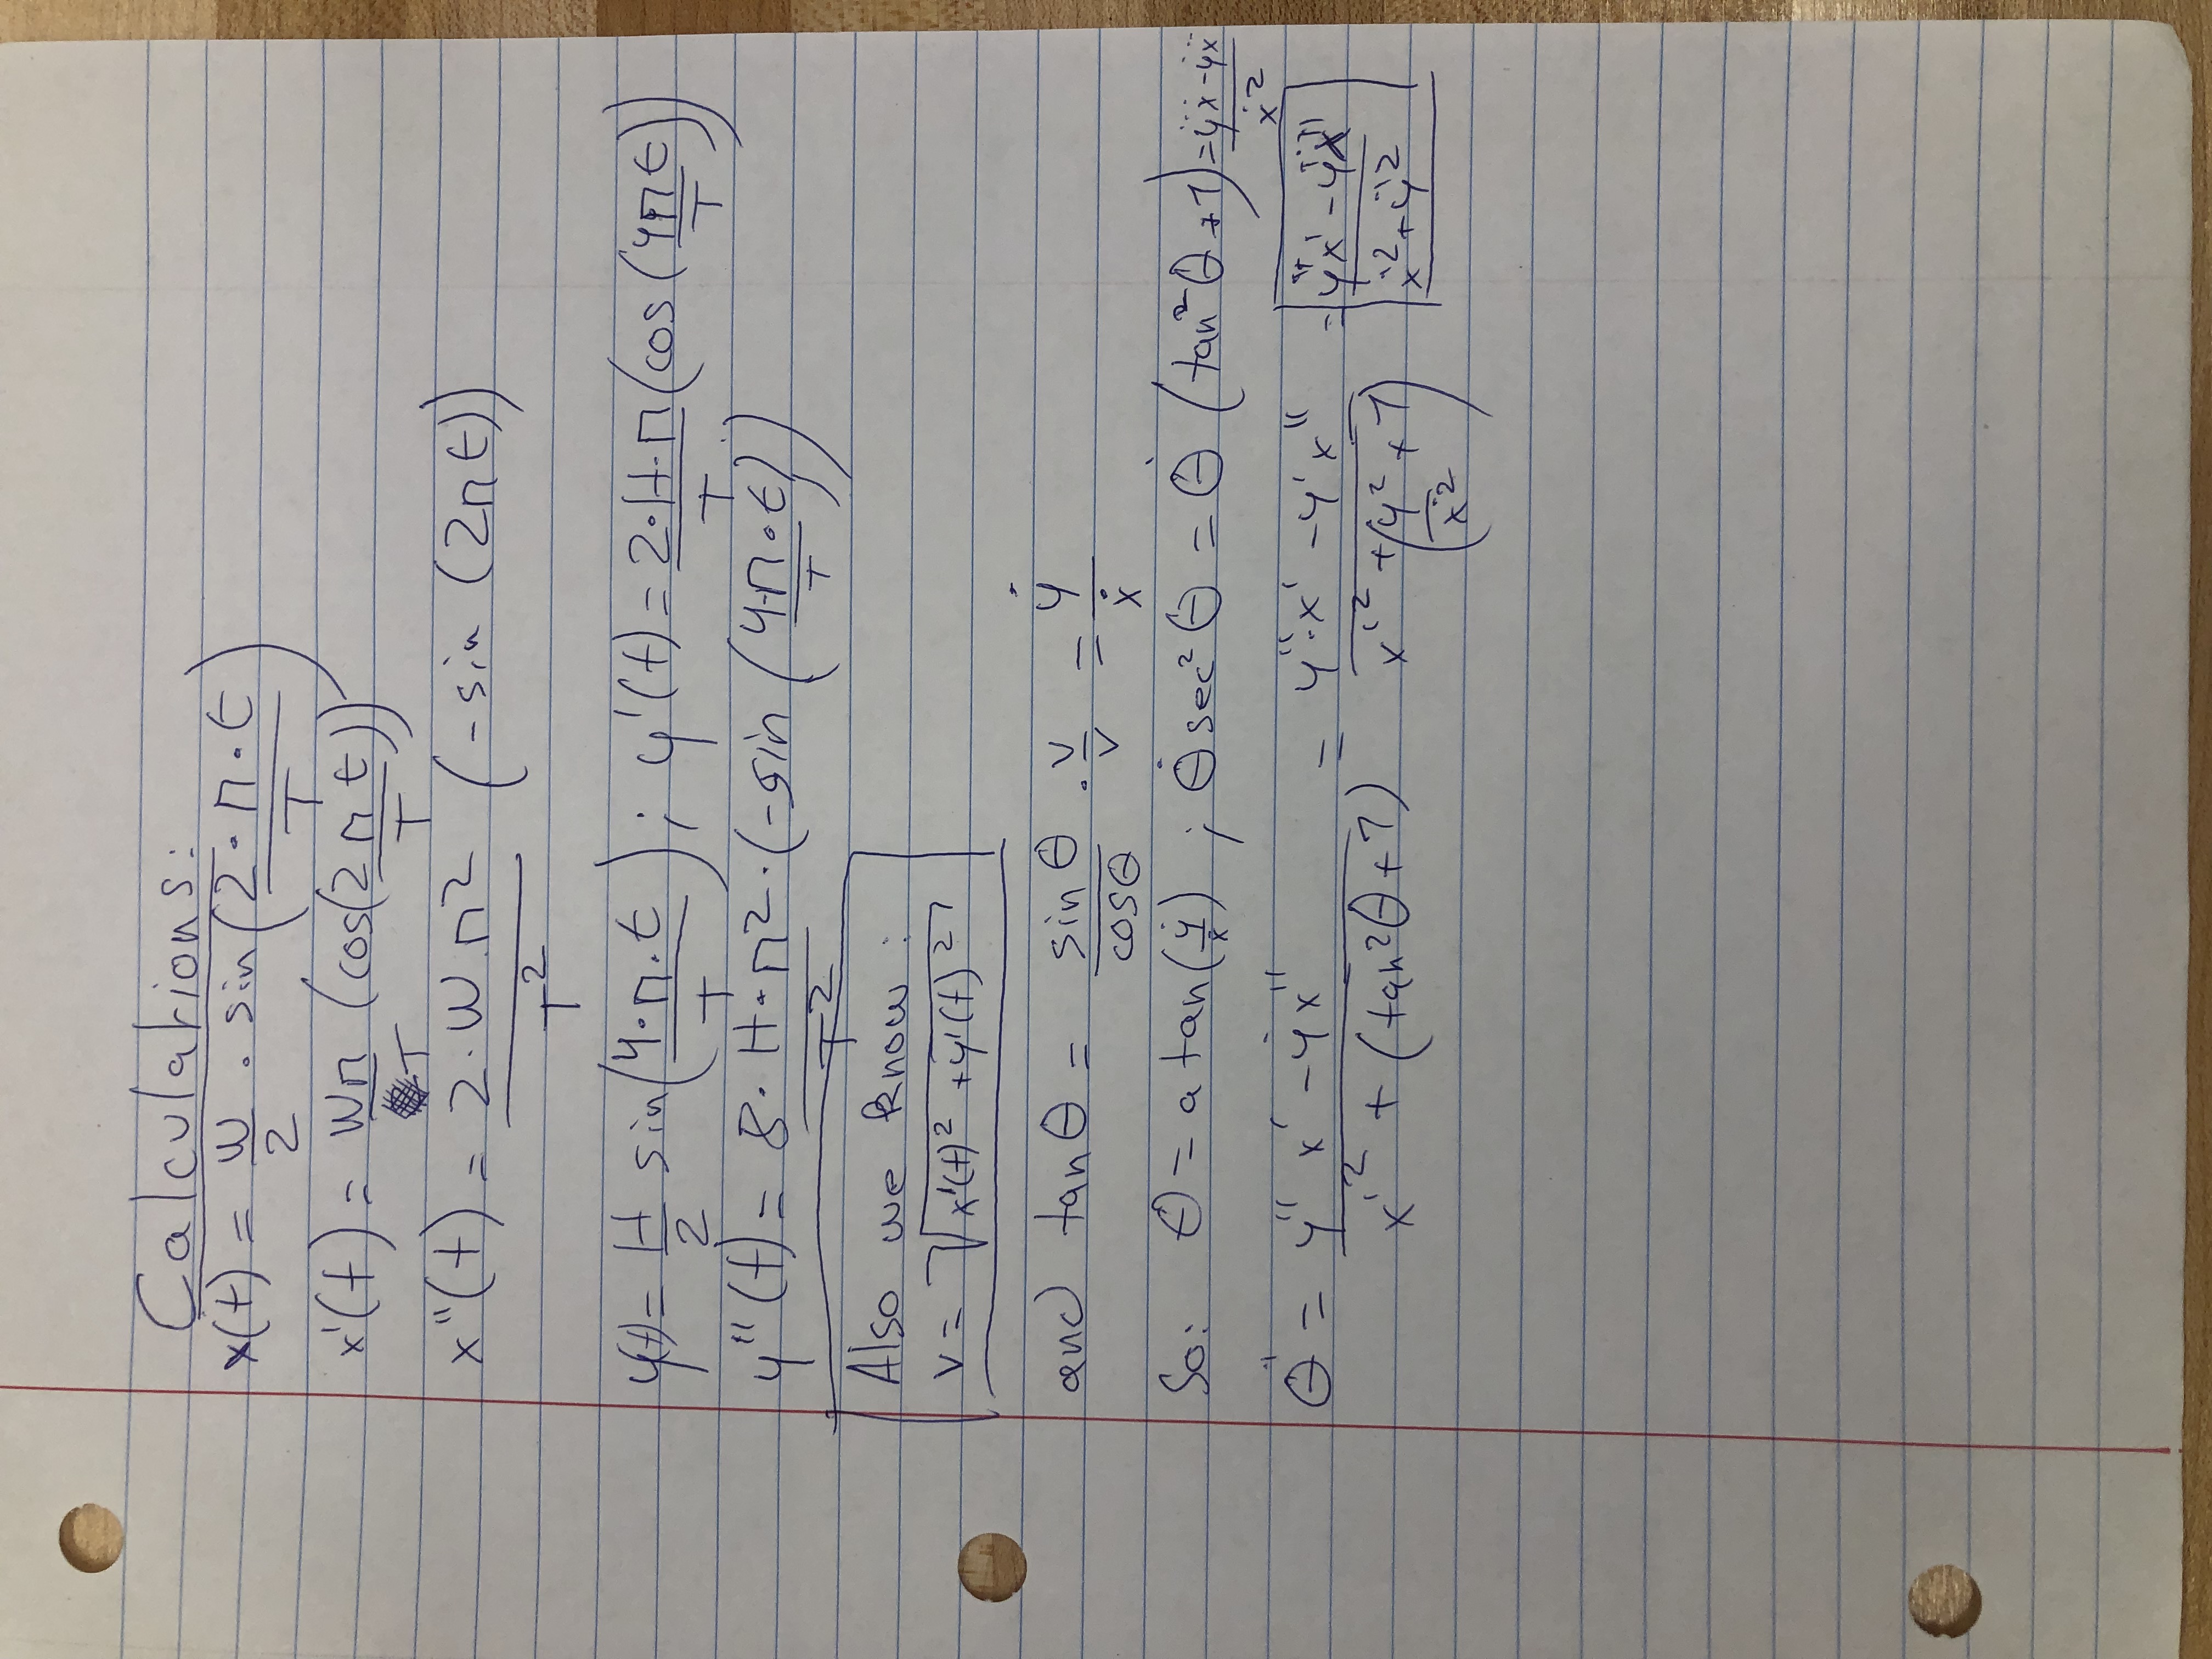 Calculations:
x(t) = W/2 · sin(2·π·t/T)
x'(t) = Wπ/T (cos(2πt/T))
x''(t) = 2·W·π²/T² (-sin(2πt))
y(t) = H/2 sin(4·π·t/T) ; y'(t) = 2·H·π/T (cos(4πt/T))
y''(t) = 8·H·π²/T² · (-sin(4·π·t/T))
Also we know:
v = √(x'(t)² + y'(t)²)
and tanθ = sinθ/cosθ · v/v = ẏ/ẋ
So: θ = atan(ẏ/ẋ) ; θ̇ sec²θ = θ̇ (tan²θ+1) = (ÿẋ-ẏẍ)/ẋ²
θ̇ = (y'' x' - ẏx'')/(x'² + (tan²θ+1)) = (y''·x' - y'x'')/(x'² + (y²/ẋ² + 1)) = (ÿx' - ẏẍ)/(ẋ²+ẏ²)